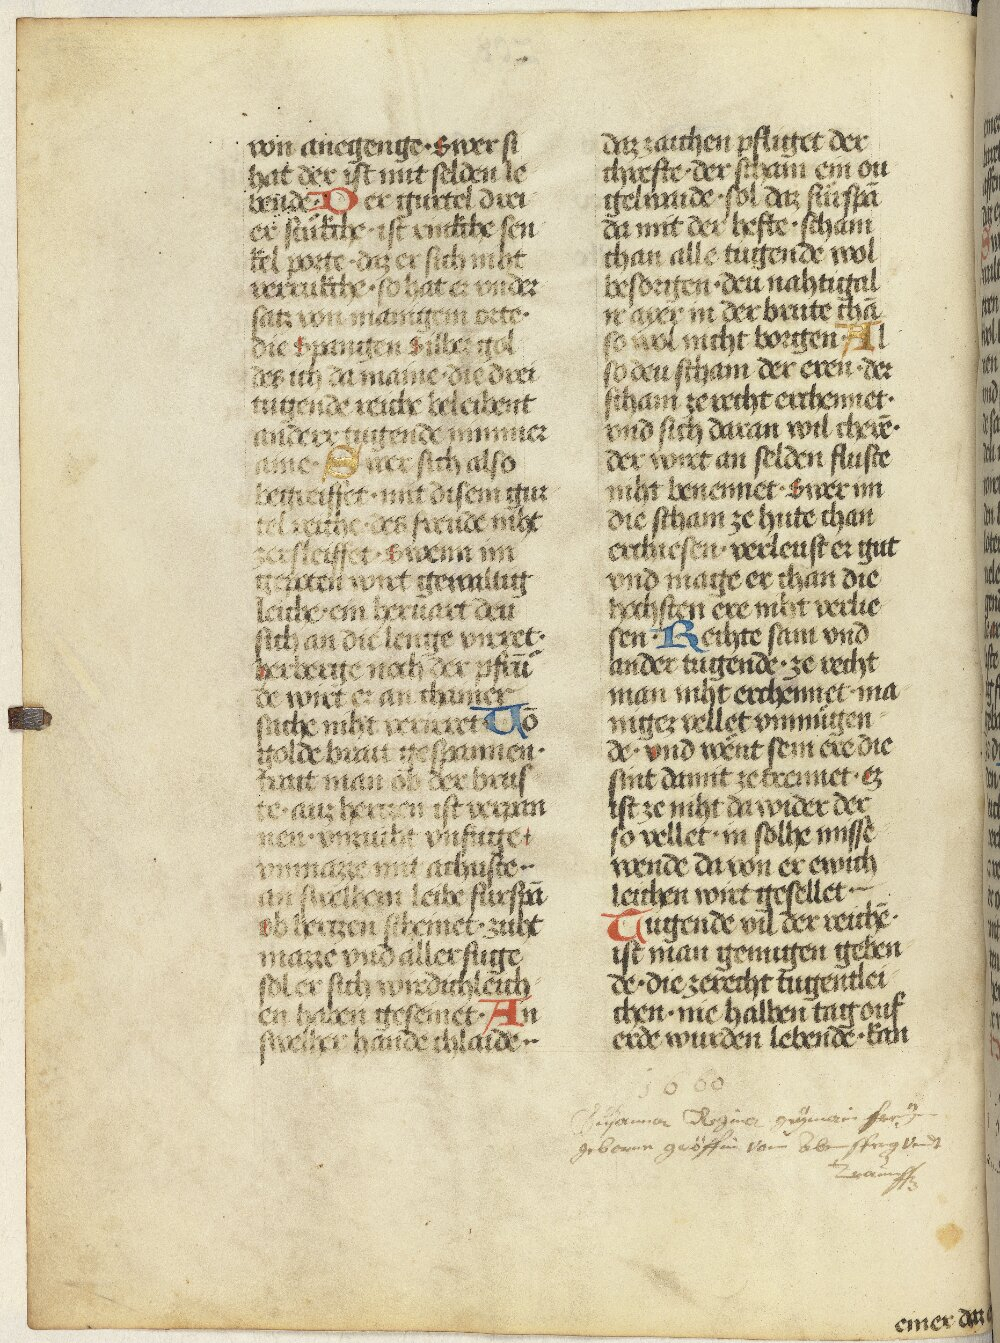 von anegenge · swer si
hat der ist mit selden le
bende · Der gurtel drei
er stukche · ist rinkche sen
kel porte · daz er sich niht
verrukche · so hat er under
satz von manigem orte ·
die spangen silber gol
des ich da maine · die drei
tugende reiche beleibent
anderr tugende nimmer
aine · Swer sich also
begreiffet · mit disem gur
tel reiche · des freude niht
zersleiffet · swenn im
geraten wirt gewaltig
leiche · ein hervart deu
sich an die lenge virret ·
herberge noch der pfrūn
de wirt er an chainer
suche niht verirret Võ
golde braut gespannen ·
traut man ob der brus
te · auz hertzen ist verpan
nen · unzuht unfuge
unmazze mit achuste ··
an swelhem leibe furspā
ob hertzen schemet · zuht
mazze und aller fuge
sol er sich wirdichleich
en haben gesemet · An
swelher hande chlaide ··
daz zaichen pfliget der
chrefte · der scham ein ou
gelwaide · sol daz fürspā
da mit der hefte · scham
chan alle tugende wol
besorgen · deu nahtigal
ir aver in der brute chā
so wol nicht borgen Al
so deu scham der eren · der
scham ze recht erchennet ·
und sich daran wil cherē ·
der wirt an selden fluste
niht benennet · swer im
die scham ze hute chan
erchiesen · verleust er gut
und mage er chan die
hochsten ere niht verlie
sen · Rechte scam und
ander tugende · ze recht
man niht erchennet · ma
niger vellet unmugen
de · und went sein ere die
sint damit ze trennet · ez
ist ze niht da wider der
so vellet · in solhe misse
wende da von er ewich
leichen wirt gesellet ·
Tugende vil der reichē ·
ist man genugen geben
de · die zerecht tugentlei
chen · nie halben tag ouf
erde wurden lebende · kan
1660
Susanna Regina
geborne gräffin von Abensperg und
Traun
einer der